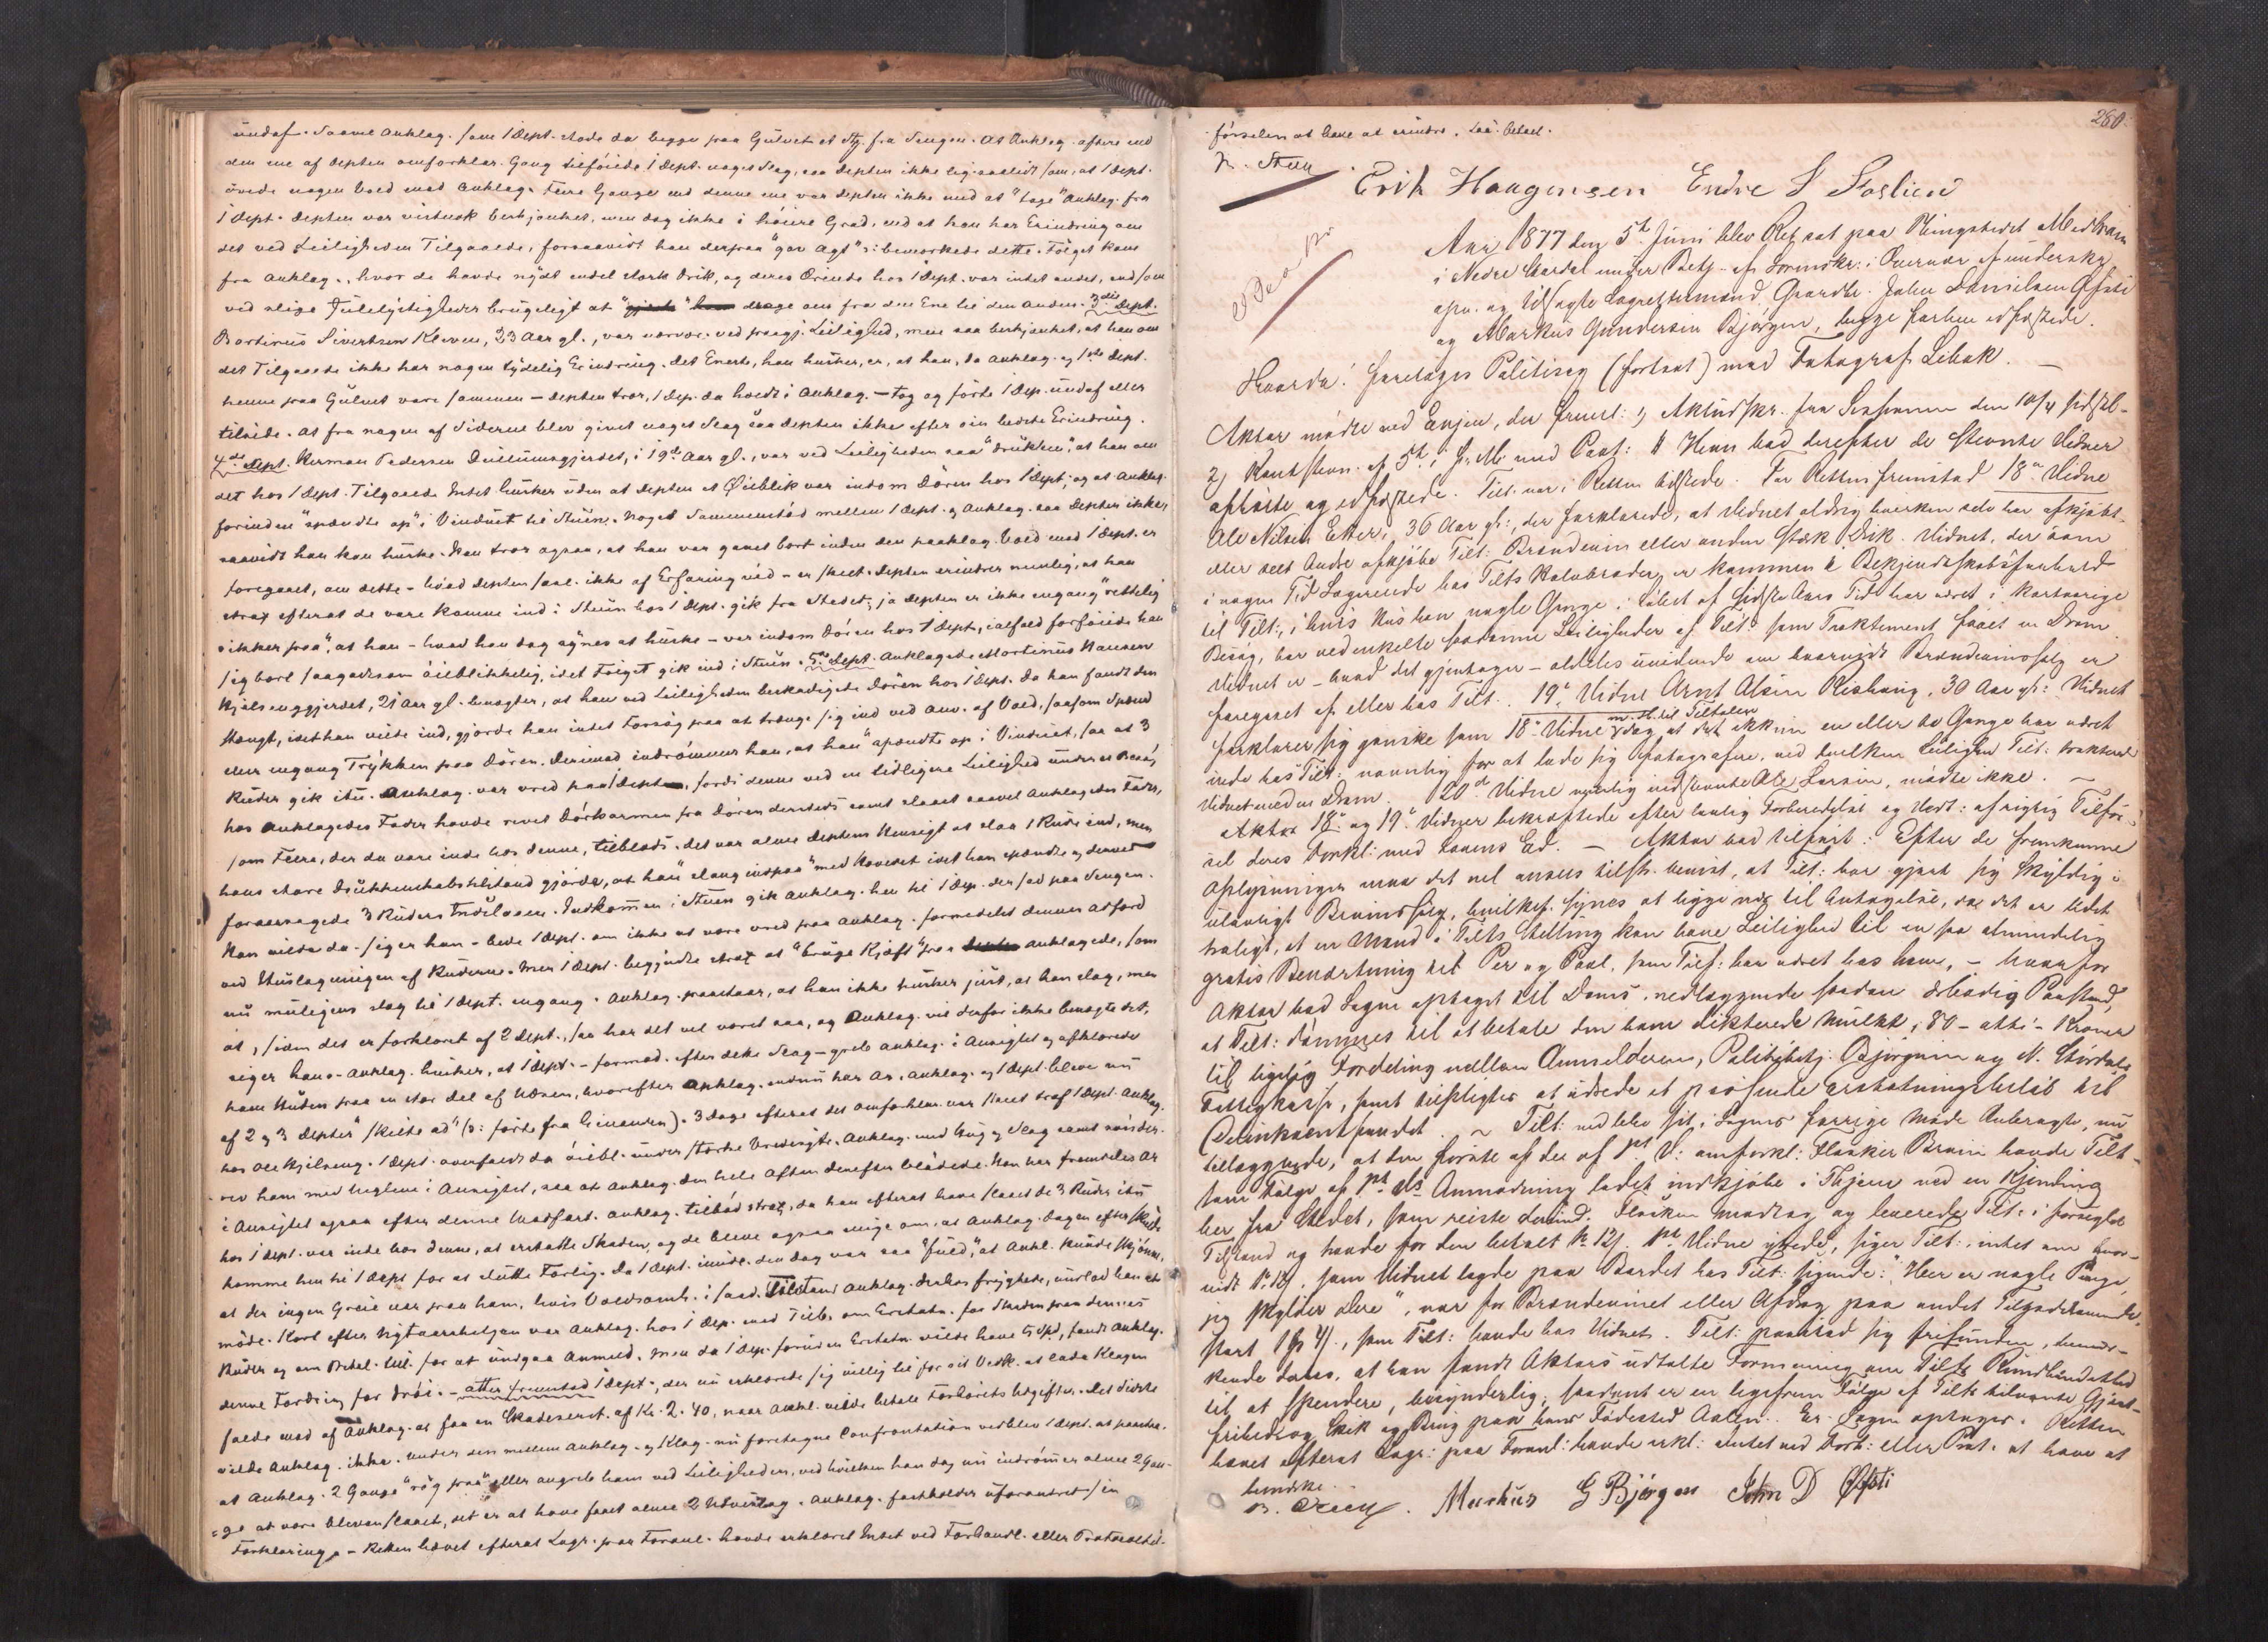 undaf. Saavel Anklag. som 1 Dept. stode da begge paa Gulvet et Stk. fra Sengen. At Anklag. oftere end
den ene af Depten omforklar. Gang tilføiede 1 Dept. noget Slag, saa Depten ikke lig. saalidt som, at 1 Dept.
øvede nogen Vold mod Anklag. Flere Gange end denne ene var Depten ikke med at "tage" Anklag. fra
1 Dept. Depten var vistnok beskjænket, men dog ikke i høiere Grad, end at han har Erindring om
det ved Leiligheden Tilgaaede, forsaavidt han derpaa "gav Agt" ɔ: bemærkede dette. Følget kom
fra Anklag., hvor de havde nydt endel stærk Drik, og deres Ærinde hos 1 Dept. var intet andet, end som
ved slige Julelystigheder brugeligt at drage om fra den Ene til den Anden. 3die Dept.
Bortinus Sivertsen Kleven, 23 Aar gl., var nærvær. ved paagj. Leilighed, men saa beskjænket, at han om
det Tilgaaede ikke har nogen tydelig Erindring. Det Eneste, han husker, er, at han, da Anklag. og 1ste Dept.
henne paa Gulvet vare sammen – Depten tror, 1 Dep. da holdt i Anklag. – tog og førte 1 Dep. undaf eller
tilside. At fra nogen af Siderne blev givet noget Slag saa Depten ikke efter sin bedste Erindring.
4de Dept. Herman Pedersen Dullumsgjerdet, i 19de Aar gl., var ved Leiligheden saa "drukken", at han om
det hos 1 Dept. Tilgaaede Intet husker uden at Depten et Øieblik var indom Døren hos 1 Dept., og at Anklag.
forinden "spændte op" i Vinduet til Stuen. Noget Sammenstød mellem 1 Dept. og Anklag. saa Depten ikke,
saavidt han kan huske. Han tror ogsaa, at han var gaaet bort inden den paaklag. Vold mod 1 Dept. er
foregaaet, om dette – hvad Depten saal. ikke af Erfaring véd – er skeet. Depten erindrer nemlig, at han
strax efterat de vare komne ind i Stuen hos 1 Dept. gik fra Stedet; ja Depten er ikke engang "rettelig
sikker paa", at han – hvad han dog synes at huske – var indom Døren hos 1 Dept., ialfald forføiede han
sig bort saagodtsom øieblikkelig, idet Følget gik ind i Stuen. 5te Dept. Anklagede Mortinus Hansen
Kjelsenggjerdet, 21 Aar gl. benegter, at han ved Leiligheden beskadigede Døren hos 1 Dept. Da han fandt den
stængt, idet han vilde ind, gjorde han intet Forsøg paa at trænge sig ind ved Anv. af Vold, saasom Spænd
eller engang Trykken paa Døren. Derimod indrømmer han, at han "spændte op" i Vinduet, saa at 3
Ruder gik itu. Anklag. var vred paa 1 Dept., fordi denne ved en tidligere Leilighed under et Besøg
hos Anklagedes Fader havde revet Dørkarmen fra Døren dersteds samt slaaet saavel Anklagedes Fader,
som Flere, der da vare inde hos denne, tilblods. Det var alene Deptens Hensigt at slaa 1 Rude ind, men
hans store Drukkenskabstilstand gjorde, at han "slang indpaa" med Hovedet idet han spændte og derved
foraarsagede 3 Ruders Indslaaen. Indkommen i Stuen gik Anklag. hen til 1 Dep. der sad paa Sengen.
Han vilde da – siger han – bede 1 Dept. om ikke at være vred paa Anklag. formedelst dennes Adfærd
ved Udslagningen af Ruderne. Men 1 Dept. begyndte strax at "bruge Kjæft" paa Anklagede, som
nu muligens slog til 1 Dept. engang. Anklag. paastaar, at han ikke husker just, at han slog, men
at, siden det er forklaret af 2 Dept., saa har det vel været saa, og Anklag. vil derfor ikke benegte det,
siger han. Anklag. husker, at 1 Dept. – formod. efter dette Slag – greb Anklag. i Ansigtet og afklorede
ham Huden paa en stor Del af Næsen, hvorefter Anklag. endnu har Ar. Anklag. og 1 Dept. bleve nu
af 2 og 3 Depter "skilte ad" (ɔ: førte fra hinanden). 3 Dage efterat det omforklar. var skeet traf 1 Dept. Anklag.
hos Ole Kjilseng. 1 Dept. overfaldt da øiebl. under stærke Vredesytr. Anklag. med Hug og Slag samt sønder-
rev ham med Neglene i Ansigtet, saa at Anklag. den hele Aften derefter blødede. Han har fremdeles Ar
i Ansigtet ogsaa efter denne Medfart. Anklag. tilbød strax, da han efterat have slaaet de 3 Ruder itu
hos 1 Dept. var inde hos denne, at erstatte Skaden, og de bleve ogsaa enige om, at Anklag. Dagen efter skulde
komme hen til 1 Dept. for at slutte Forlig. Da 1 Dept. imidl. den Dag var saa "fuld", at Ankl. kunde skjønne,
at der ingen Greie var paa ham, hvis Voldsomh. i saad. Tilstand Anklag. derhos frygtede, undlod han at
møde. Kort efter Nytaarshelgen var Anklag. hos 1 Dep. med Tilb. om Erstatn. for Skaden paa dennes
Ruder og om Betal. till. for at undgaa Anmeld. Men da 1 Dep. foruden Erstatn. vilde have 5 Spd., fandt Anklag.
denne Fordring for drøi. – Atter fremstod 1 Dept., der nu erklærede sig villig til for sit Vedk. at lade Klagen
falde mod af Anklag. at faa en Skadeserst. af Kr. 2.40, naar Ankl. vilde betale Forhørets Udgifter. Det Sidste
vilde Anklag. ikke. Under den mellem Anklag. og Klag. nu foretagne Confrontation vedblev 1 Dept. at paastaa,
at Anklag. 2 Gange "røg paa" eller angreb ham ved Leiligheden, ved hvilken han dog nu indrømmer alene 2 Gan-
ge at være bleven slaaet, det er at have faaet alene 2 Anklag. fastholder uforandret sin
Forklaring. – Retten hævet efterat Lagr. paa Foranl. havde erklæret Intet ved Forhandl. eller Protocoltil-
280.
førselen at have at erindre. Laa. betalt.
Erik Haagensen Endre S Foslien
Aar 1877 den 5te Juni blev Ret sat paa Thingstedet Midtbrain
i Nedre Stjørdal under Betj. af Sorenskr. i Overvær af underskr.
opn. og tilsagte Lagrettesmænd, Gaardbr. John Danielsen Øfsti
og Markus Gundersen Bjørgen, begge forhen edfæstede.
Hvorda: foretoges Politisag (fortsat) mod Fotograf Lebak. –
Aktor mødte ved Engen, der fremL: 1) Aktudskr. fra Sessionen den 10/4 sidstl.
2) Kontrastevn. af 5te i f. M. med Paat: Han bad derefter de stevnte Vidner
afhørte og edfæstede. Tilt. var i Retten tilstede. For Retten fremstod 18de Vidne
Ole Nilsen Etter, 36 Aar gl:, der forklarede, at Vidnet aldrig hverken selv har afkjøbt
eller seet Andre afkjøbe Tilt: Brændevin eller anden stærk Drik. Vidnet, der som
i nogen Tid Logerende hos Tilts Halvbroder, er kommen i Bekjendtskabsforhold
til Tilt:, i hvis Hus han nogle Gange i Løbet af sidste Aars Tid har været i kortvarige
Besøg, har ved enkelte saadanne Leiligheder af Tilt: som Traktement faaet en Dram.
Vidnet er – hvad det gjentager – aldeles uvidende om hvorvidt Brændevinssalg er
foregaaet af eller hos Tilt. 19de Vidne Arnt Olsen Rishaug, 30 Aar gl: Vidnet
forklarer sig ganske som 18de Vidne dog at det ikkun en eller to Gange har været
inde hos Tilt: navnlig for at lade sig fotografere, ved hvilken Leilighed Tilt: trakterede
Vidnet med en Dram. 20de Vidne nemlig indstevnte Ole Larsen, mødte ikke. –
18de og 19de Vidner bekræftede efter lovlig Forberedelse og Vedt: af rigtig Tilfør-
sel deres Forkl: med Lovens Ed. – Aktor bad tilført: Efter de fremkomne
Oplysninger maa det vel ansees tilstr. bevist, at Tilt: har gjort sig skyldig i
ulovligt Br.vinssalg, hvilket synes at ligge nær til Antagelse, da det er lidet
troligt, at en Mand i Tilts Stilling kan have Leilighed til en saa almindelig
gratis Beværtning til Per og Paal, som Tilf: har været hos ham, – hvorfor
Aktor bad Sagen optaget til Doms, nedlæggende saadan ærbødig Paastand,
at Tilt: dømmes til at betale den ham dikterede Mulkt, 80 – otti – Kroner
til ligelig Fordeling mellem Anmelderen, Politibetj. Bjørgum og N. Stjørdals
Fattigkasse, samt tilpligtes at udrede et passende Erstatningsbeløb til
Delinkventfondet. ~ Tilt: vedblev sit i Sagens forrige Møde Anbragte, nu
tillæggende, at den første af de af 1ste V: omforkl: Flasker Br.vin havde Tilt
som Følge af 1ste Vs Anmodning ladet indkjøbe i Thjem ved en Kjending
her fra Stedet, som reiste derind. Flasken modtog og leverede Tilt: i forseglet
Tilstand og havde for den betalt 12 s. 1ste Vidne ytrede, siger Tilt:, intet om hvor-
vidt de 12 s. som Vidnet lagde paa Bordet hos Tilt: sigende: "Her er nogle Penge,
jeg skylder Dere", var for Brændevinet eller Afdrag paa andet Tilgodehavende,
stort 1 Spd 4 s., som Tilt: havde hos Vidnet. Tilt: paastod sig frifunden, bemær-
kende derhos, at han fandt Aktors udtalte Formening om Tilts Rundhaandethed
til at spendere, besynderlig; saadant er en ligefrem Følge af Tilts tilvante Gjæst-
frihed og Skik og Brug paa hans Fødested Aalen. – Sagen optages. Retten
hævet efterat Lagr: paa Foranl: havde erkl: Intet ved Forh: eller Prot. at have at
bemærke.
Markus G Bjørgen John D Øfsti